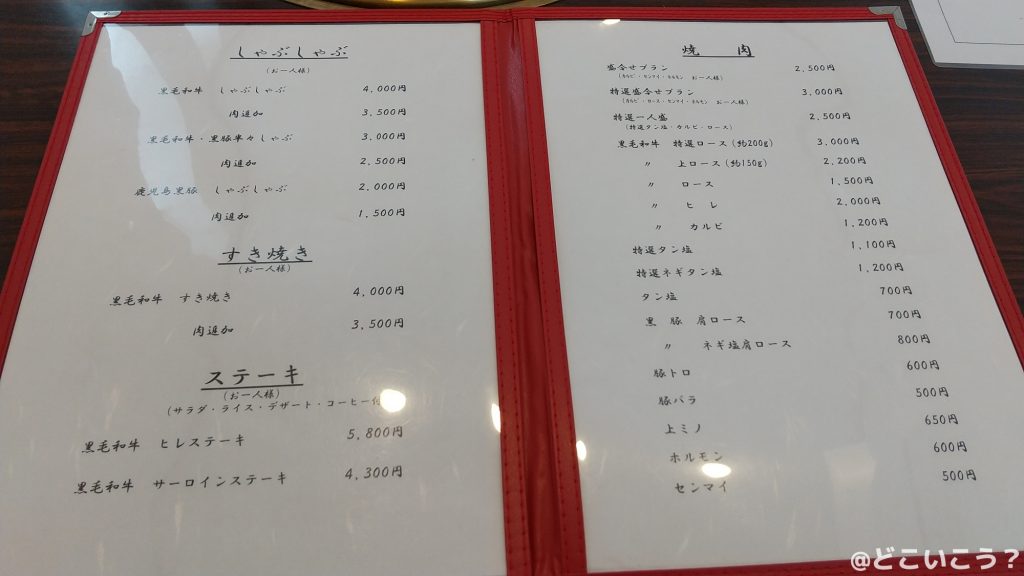 しゃぶしゃぶ
(お一人様)
黒毛和牛 しゃぶしゃぶ 4,000円
肉追加 3,500円
黒毛和牛・黒豚半々しゃぶ 3,000円
肉追加 2,500円
鹿児島黒豚 しゃぶしゃぶ 2,000円
肉追加 1,500円
すき焼き
(お一人様)
黒毛和牛 すき焼き 4,000円
肉追加 3,500円
ステーキ
(お一人様)
(サラダ・ライス・デザート・コーヒー付
黒毛和牛 ヒレステーキ 5,800円
黒毛和牛 サーロインステーキ 4,300円
焼 肉
盛合せプラン 2,500円
(カルビ・センマイ・ホルモン お一人様)
特選盛合せプラン 3,000円
(カルビ・ロース・センマイ・ホルモン お一人様)
特選一人盛 2,500円
(特選タン塩・カルビ・ロース)
黒毛和牛 特選ロース(約200g) 3,000円
〃 上ロース(約150g) 2,200円
〃 ロース 1,500円
〃 ヒレ 2,000円
〃 カルビ 1,200円
特選タン塩 1,100円
特選ネギタン塩 1,200円
タン塩 700円
黒 豚 肩ロース 700円
〃 ネギ塩肩ロース 800円
豚トロ 600円
豚バラ 500円
上ミノ 650円
ホルモン 600円
センマイ 500円
@どこいこう?